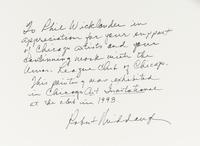 To Phil Wicklander in
appreciation for your support
of Chicago artists and your
continuing work with the
Union League Club of Chicago.
This painting was exhibited
in Chicago Art Invitational
at the club in 1993
Robert